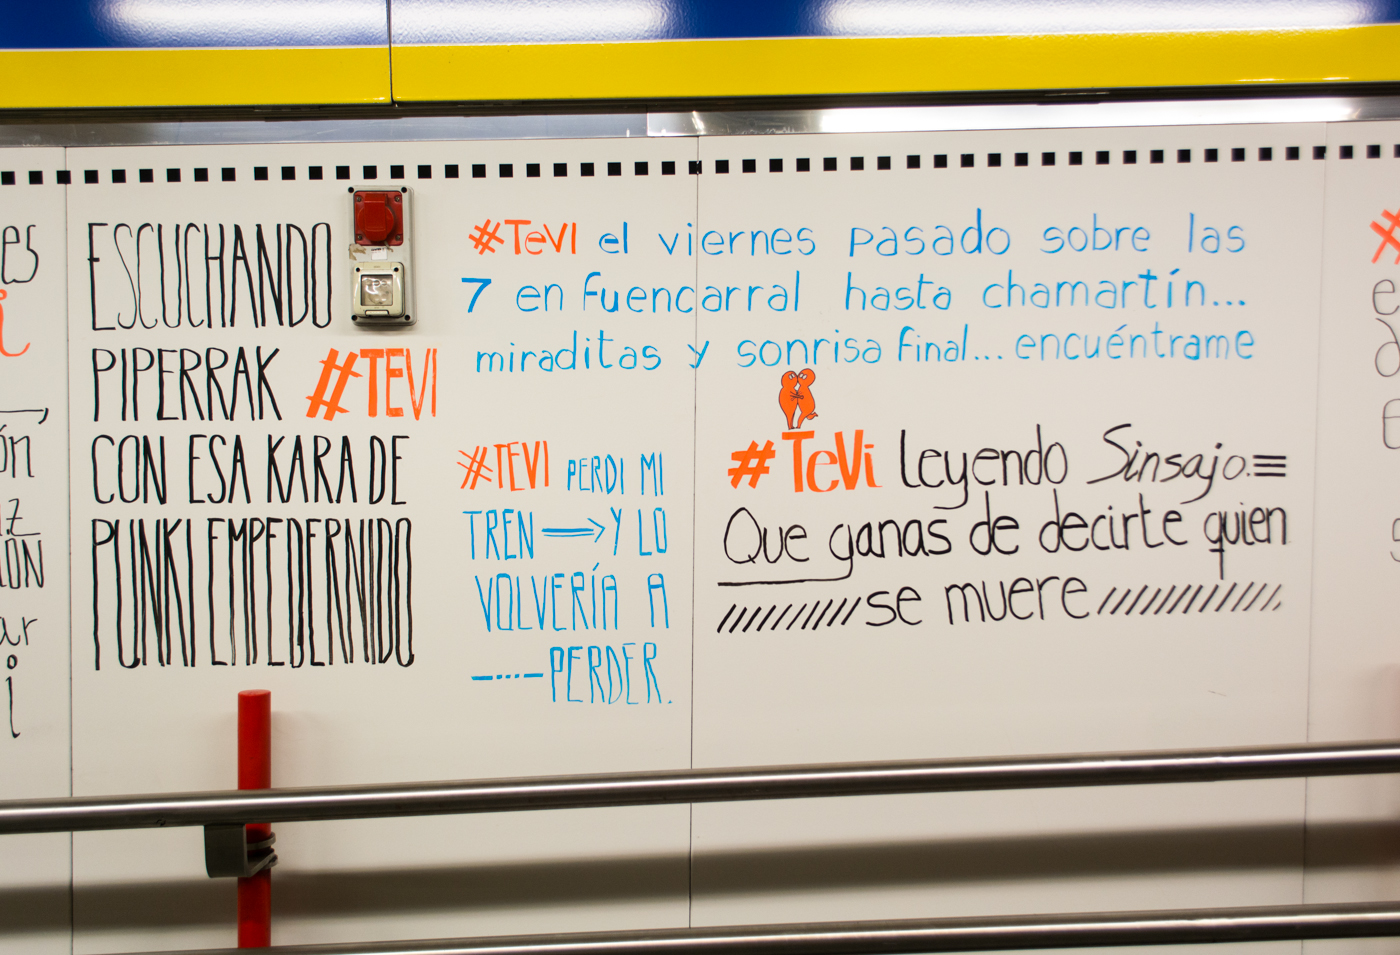 ESCUCHANDO
PIPERRAK #TEVI
CON ESA KARA DE
PUNKI EMPEDERNIDO
#TeVI el viernes pasado sobre las
7 en fuencarral hasta chamartín...
miraditas y sonrisa final... encuéntrame
#TEVI PERDI MI
TREN ⟹ Y LO
VOLVERÍA A
PERDER.
#TeVi Leyendo Sinsajo.
Que ganas de decirte quien
se muere